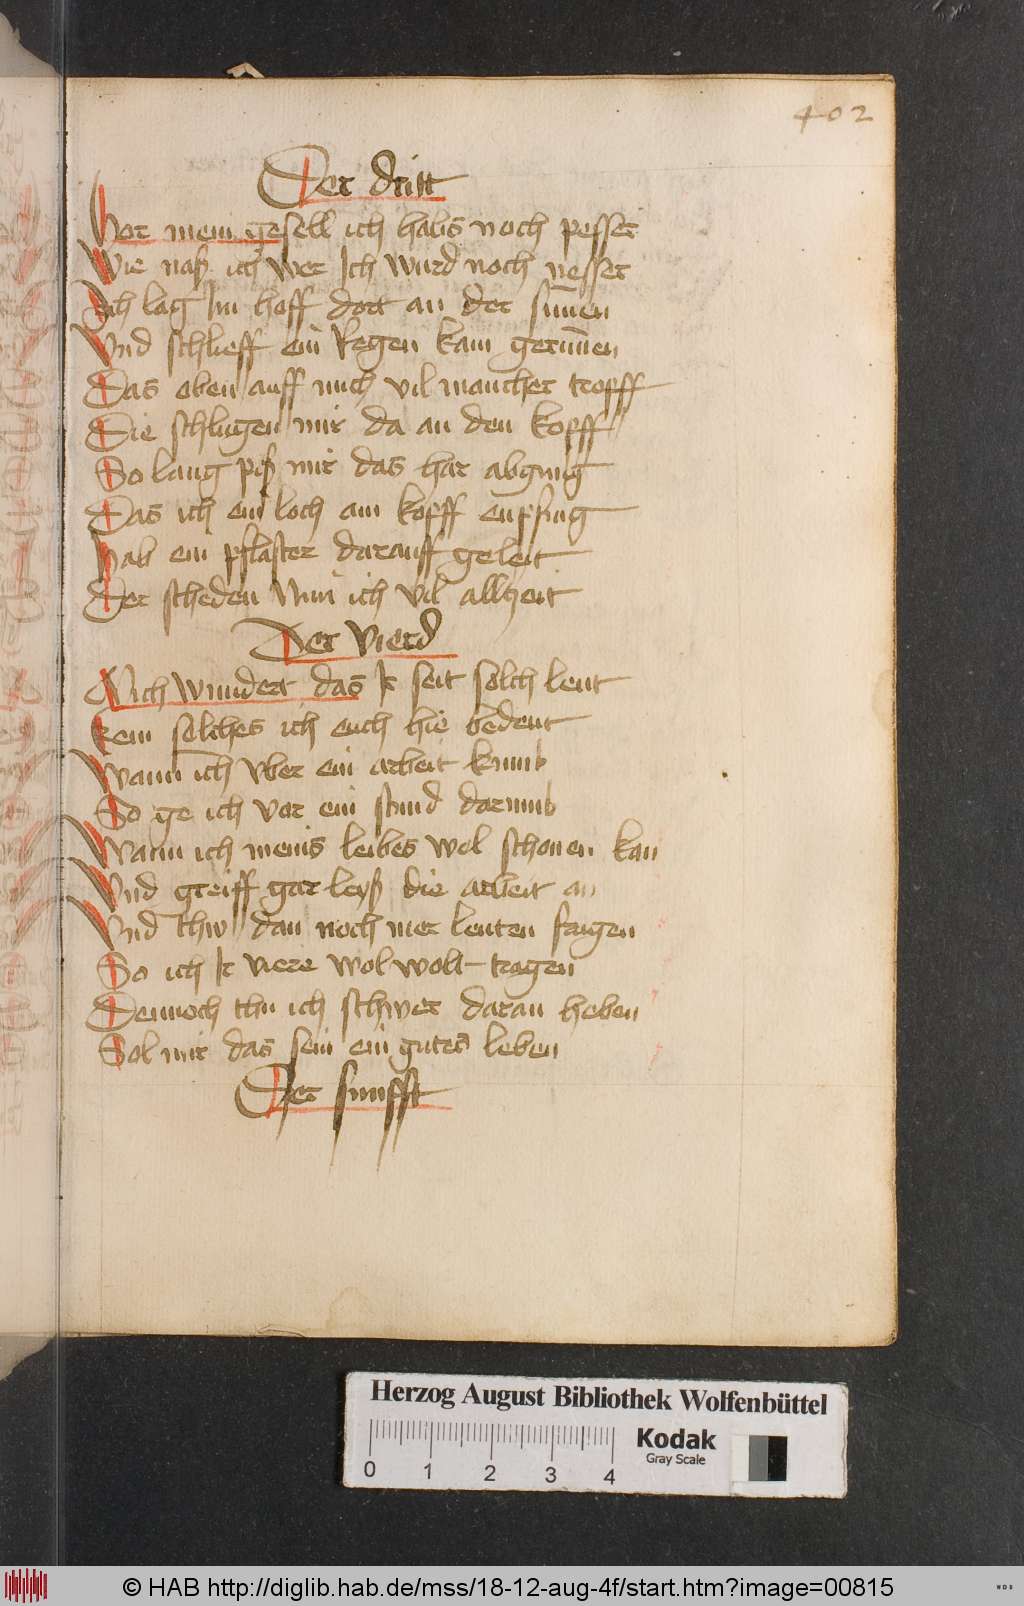 402
Der dritt
Hor mein gesell ich habs noch pesser
Wie naß ich wer Ich wurd noch nesser
Ich lag Im hoff dort an der sunnen
Vnd schlieff ein Regen kam gerunnen
Das oben auff mich vil mancher tropff
Die schlugen mir da an den kopff
So lang piß mir das har abging
Das ich ein loch am kopff enpfing
hab ein pflaster darauff geleit
Der scheden Nim ich vil allzeit
Der Vierd
Mich wundert das Ir seit solch leut
kein solches ich euch hie bedeut
Wann ich vber ein arbeit kumb
So ge ich vor ein stund darumb
Wann ich meins leibes wol schonen kan
Vnd greiff gar leyß die arbeit an
Vnd thw dan noch mer leuten sagen
So ich Ir viere wol wolt tragen
Dennoch thu ich schwer daran heben
Sol mir das sein ein gutes leben
Der funfft
Herzog August Bibliothek Wolfenbüttel
0 1 2 3 4
Kodak
Gray Scale
© HAB http://diglib.hab.de/mss/18-12-aug-4f/start.htm?image=00815
WDB